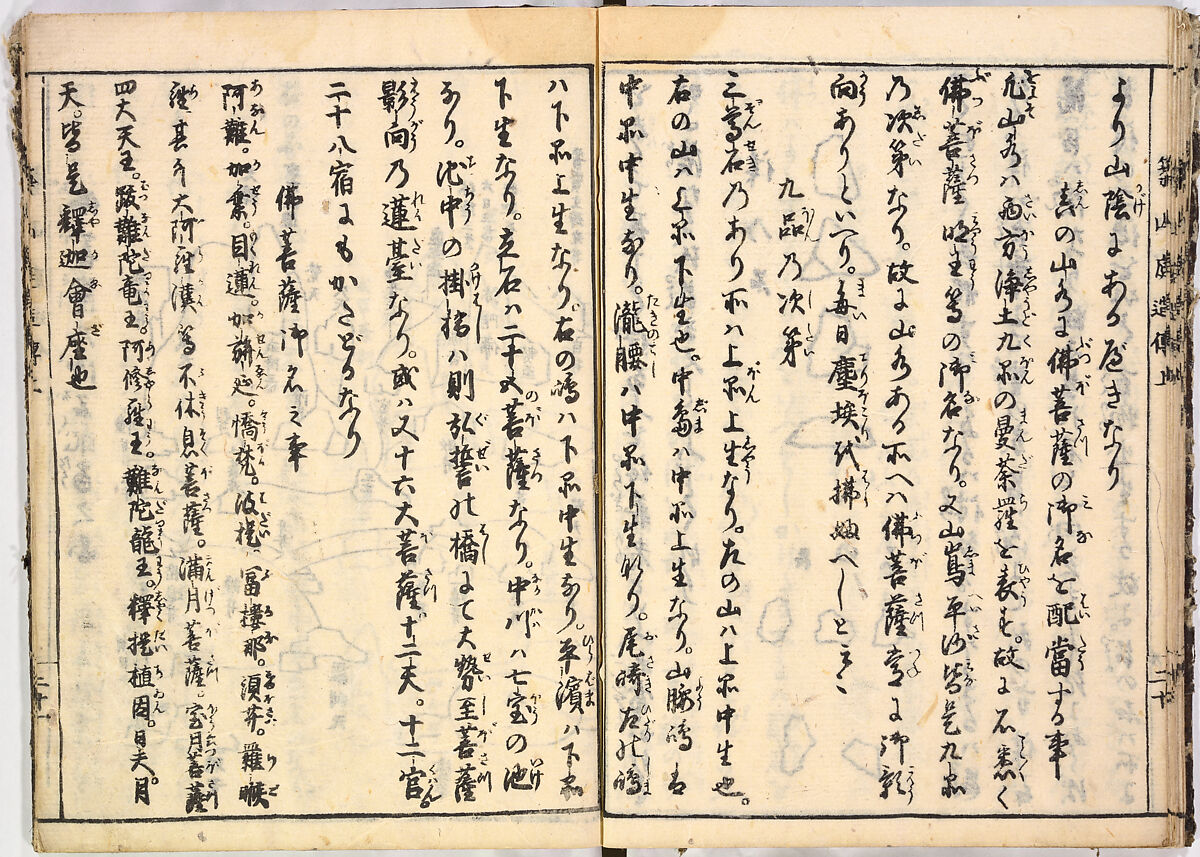 より山陰にあるべきなり
真の山水に佛菩薩の御名を配當する事
凡山水ハ西方浄土九品の曼荼羅を表す。故に石悉く
佛菩薩明王等の御名なり。又山嶌平沙皆是九品
乃次第なり。故に山水ある所へハ佛菩薩常に御影
向ありといへり。毎日塵埃我拂ぬべしと云々
九品乃次第
三尊石乃あり所ハ上品上生なり。左の山ハ上品中生也。
右の山ハ上品下生也。中島ハ中品上生なり。山腰嶋者
中品中生なり。瀧腰ハ中品下生なり。尾崎左の嶋
ハ下品上生なり。右の嶋ハ下品中生なり。平濱ハ下品
下生なり。立石ハ二十五菩薩なり。中川ハ七宝の池
なり。池中の掛橋ハ則弘誓の橋にて大勢至菩薩
影向乃蓮臺なり。或ハ又十六大菩薩。十二天。十二宮。
二十八宿にもかさどるなり
佛菩薩御名之事
阿難。加葉。目連。加旃延。憍梵。波提。冨樓那。須菩。羅睺
羅其外大阿羅漢等不休息菩薩。満月菩薩。宝月菩薩
四大天王。跋難陀竜王。阿修羅王。難陀龍王。釋提植因。日天。月
天。皆是釋迦會座也
築山庭造傳上
二十
二十一